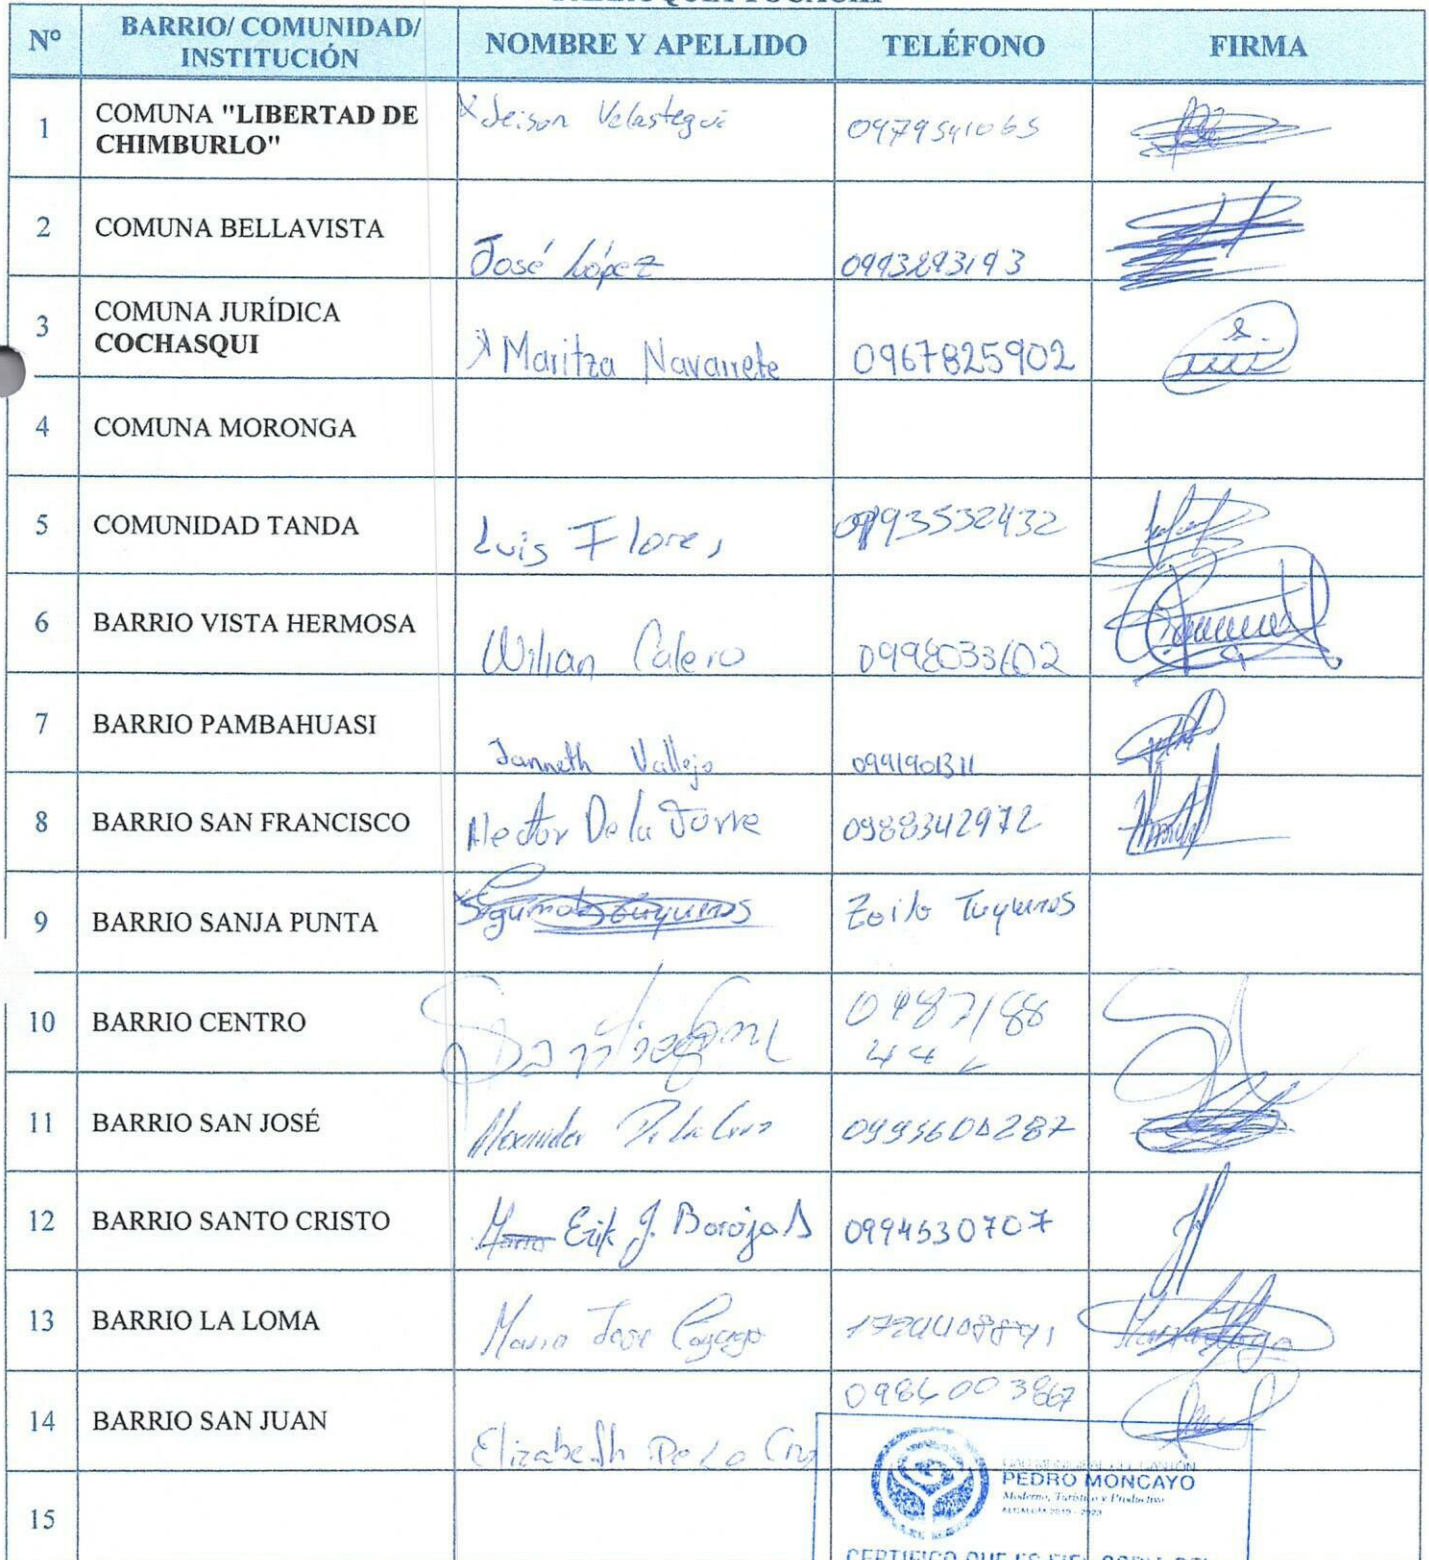 Nº BARRIO/ COMUNIDAD/ INSTITUCIÓN NOMBRE Y APELLIDO TELÉFONO FIRMA
1 COMUNA "LIBERTAD DE CHIMBURLO" Jeison Velastegui 0979541065
2 COMUNA BELLAVISTA José López 0993293193
3 COMUNA JURÍDICA COCHASQUI Maritza Navarrete 0967825902
4 COMUNA MORONGA
5 COMUNIDAD TANDA Luis Flores 0993532432
6 BARRIO VISTA HERMOSA Wilian Calero 0998033602
7 BARRIO PAMBAHUASI Janneth Vallejo 0941901311
8 BARRIO SAN FRANCISCO Hector De la Torre 0988342972
9 BARRIO SANJA PUNTA Zoilo Tuquerres
10 BARRIO CENTRO
11 BARRIO SAN JOSÉ Alexander De la Cruz
12 BARRIO SANTO CRISTO Erik J. Borja 0994530707
13 BARRIO LA LOMA Maria Jose
14 BARRIO SAN JUAN Elizabeth De La Cruz
15
PEDRO MONCAYO
Moderno, Turístico y Productivo